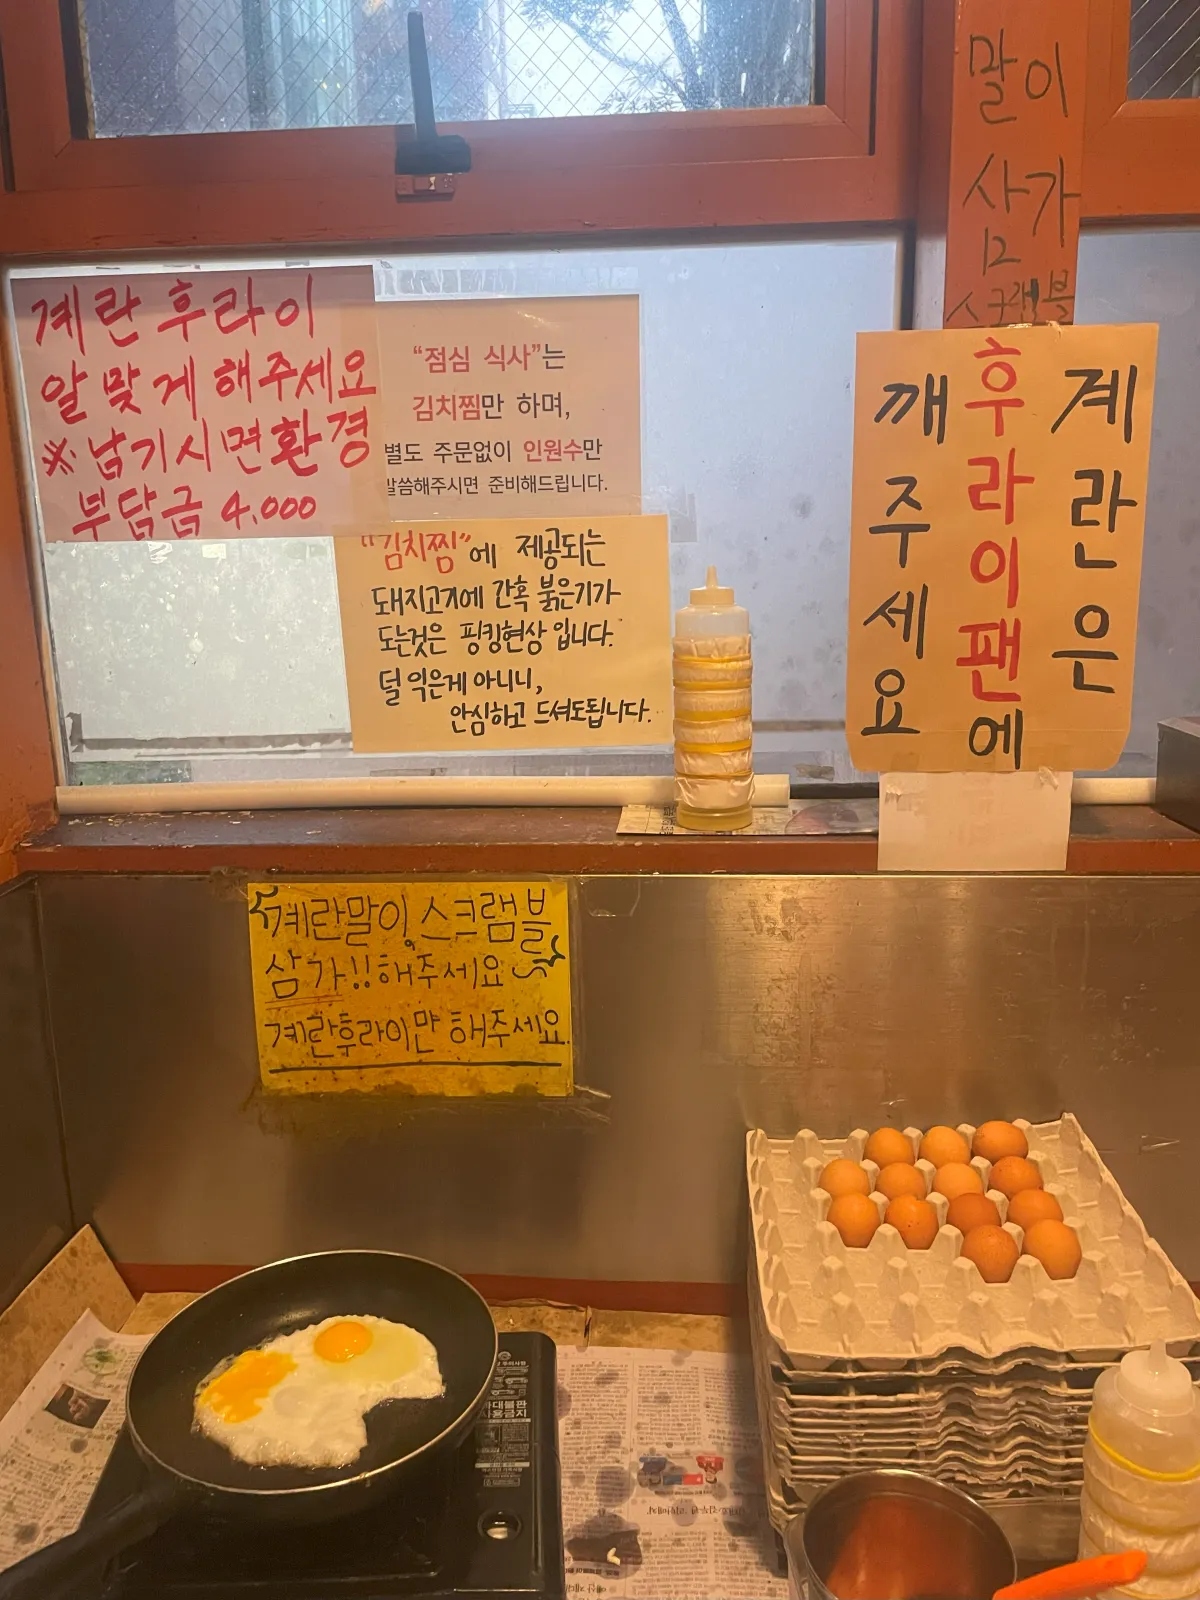 말이
삼가
스크램블
계란 후라이
알 맞게 해주세요
※ 남기시면 환경
부담금 4,000
"점심 식사"는
김치찜만 하며,
별도 주문없이 인원수만
말씀해주시면 준비해드립니다.
"김치찜"에 제공되는
돼지고기에 간혹 붉은기가
도는것은 핑킹현상 입니다.
덜 익은게 아니니,
안심하고 드셔도됩니다.
계란은
후라이팬에
깨주세요
계란말이, 스크램블
삼가!! 해주세요
계란후라이만 해주세요.
대불판
사용금지